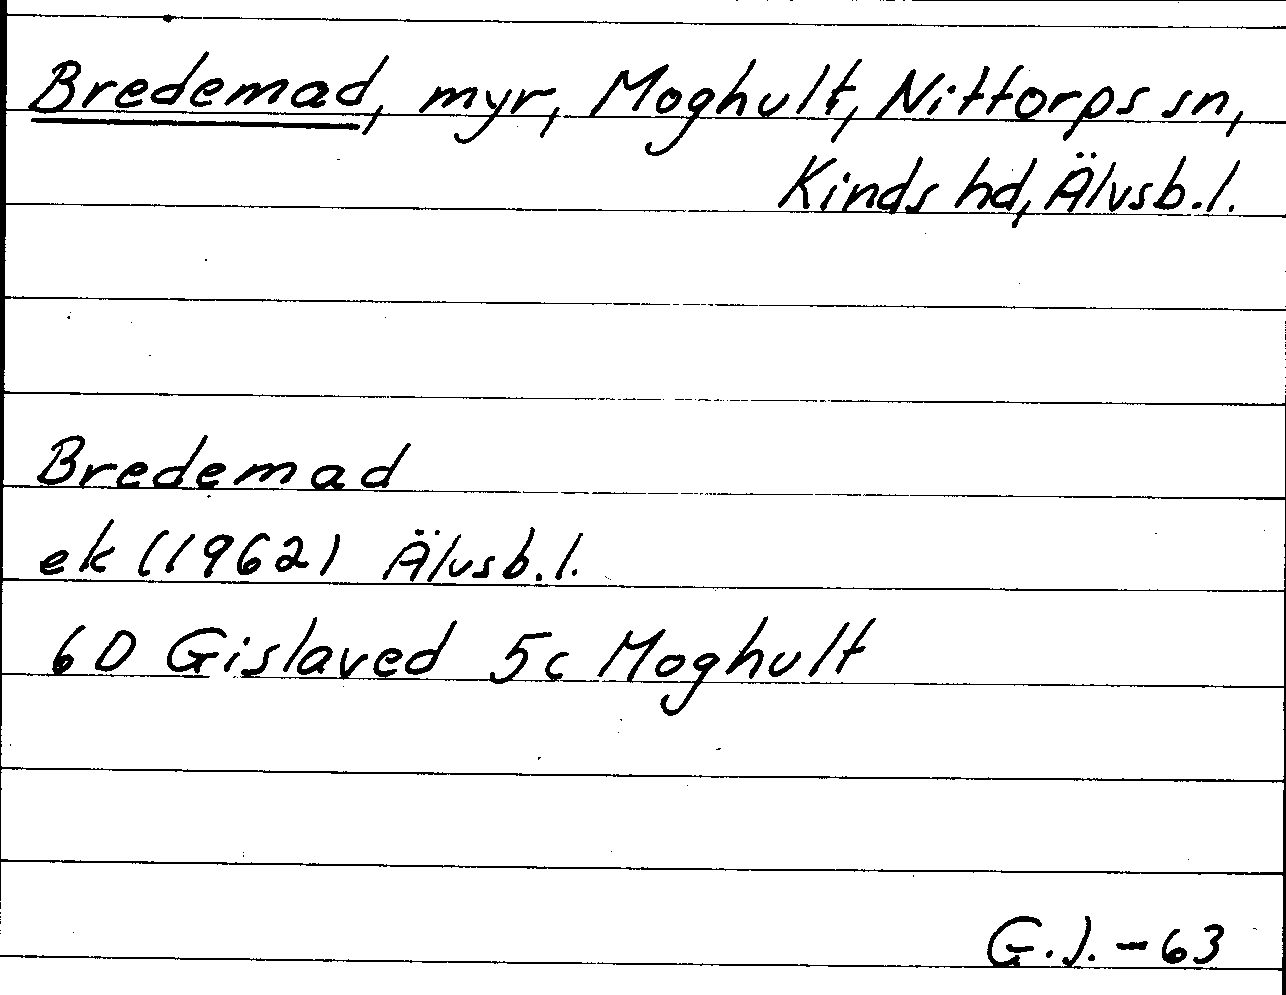 Bredemad, myr, Moghult, Nittorps sn,
Kinds hd, Älvsb.l.
Bredemad
ek (1962) Älvsb.l.
6D Gislaved 5c Moghult
G.J. - 63